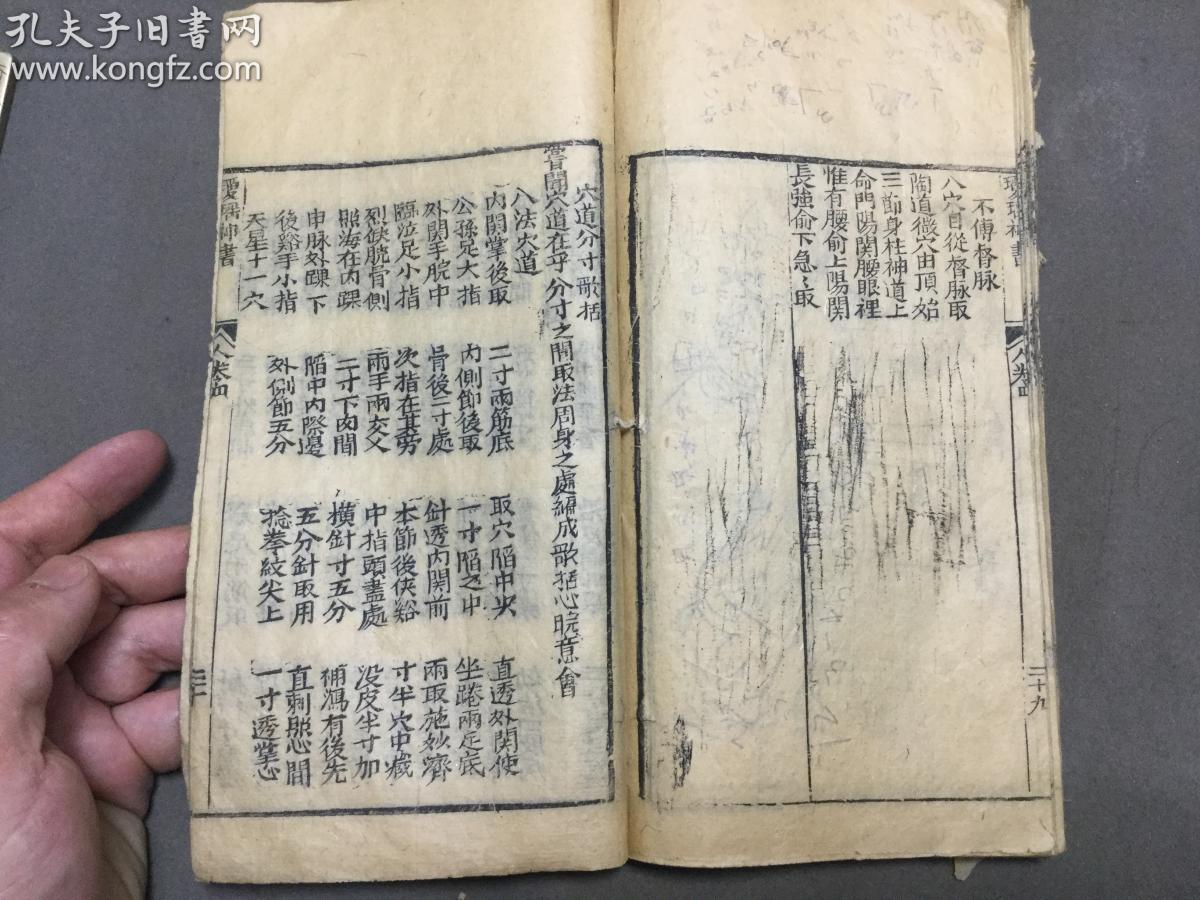 孔夫子旧书网
www.kongfz.com
不傳督脉
八穴自從督脉取
陶道微穴由頂始
三節身柱神道上
命門陽関腰眼裡
惟有腰俞上陽関
長強俞下急〻取
卷四
二十九
穴道分寸歌括
嘗聞穴道在乎分寸之間取法周身之處編成歌括心晥意會
八法穴道
内関掌後取 二寸兩筋底 取穴陷中坎 直透外関使
公孫足大指 内側節後取 一寸陷之中 坐踡兩足底
外関手腕中 骨後二寸處 針透内関前 兩取施妙濟
臨泣足小指 次指在其旁 本節後侠谿 寸半穴中藏
烈缺腕骨側 兩手兩交叉 中指頭盡處 没皮半寸加
照海在内踝 二寸下肉間 横針寸五分 補瀉有後先
申脉外踝下 陷中内際邊 五分針取用 直刺照心間
後谿手小指 外側節五分 捻拳紋尖上 一寸透掌心
天星十一穴
神書
人卷四
三十